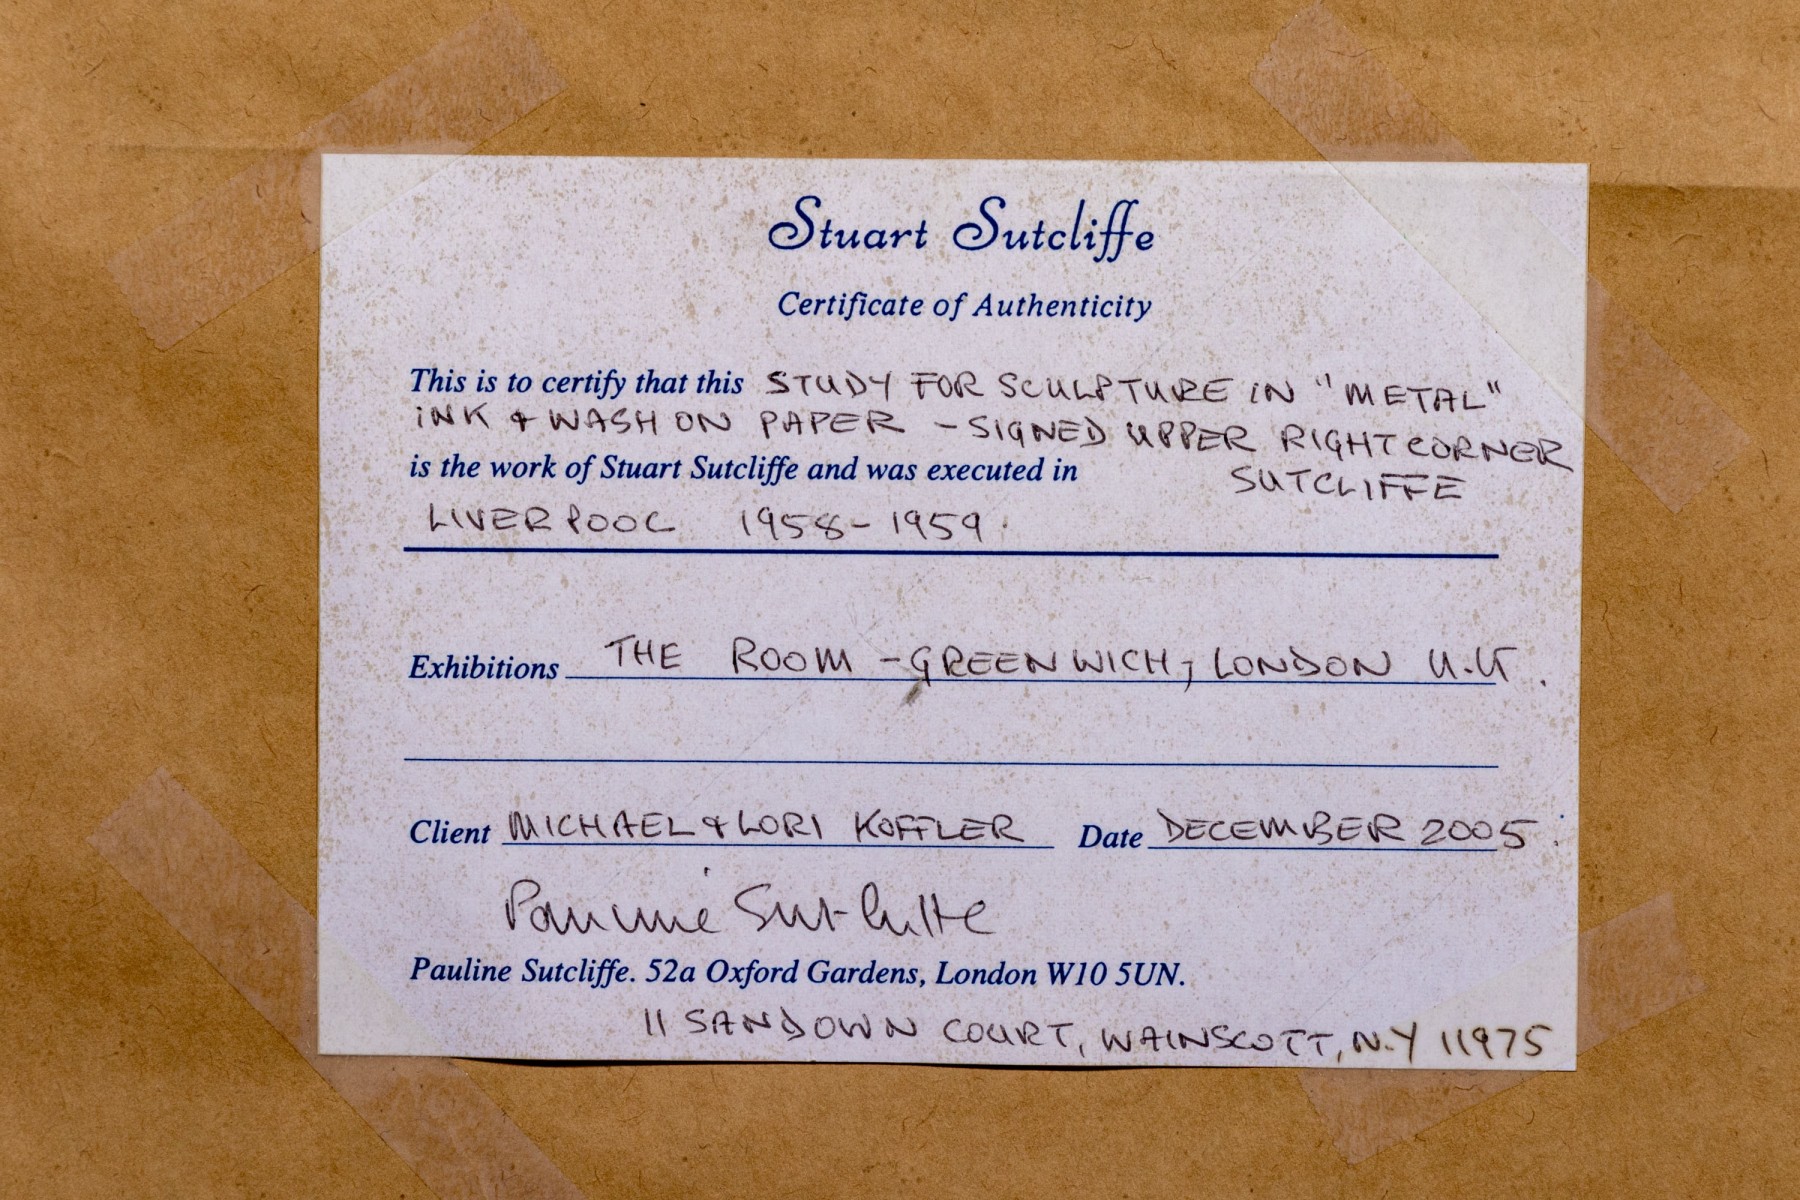 Stuart Sutcliffe
Certificate of Authenticity
This is to certify that this STUDY FOR SCULPTURE IN "METAL"
INK & WASH ON PAPER - SIGNED UPPER RIGHT CORNER
SUTCLIFFE
is the work of Stuart Sutcliffe and was executed in
LIVERPOOL 1958-1959.
Exhibitions THE ROOM - GREENWICH, LONDON U.K.
Client MICHAEL & LORI KOFFLER Date DECEMBER 2005.
Pauline Sutcliffe
Pauline Sutcliffe. 52a Oxford Gardens, London W10 5UN.
11 SANDOWN COURT, WAINSCOTT, N.Y 11975